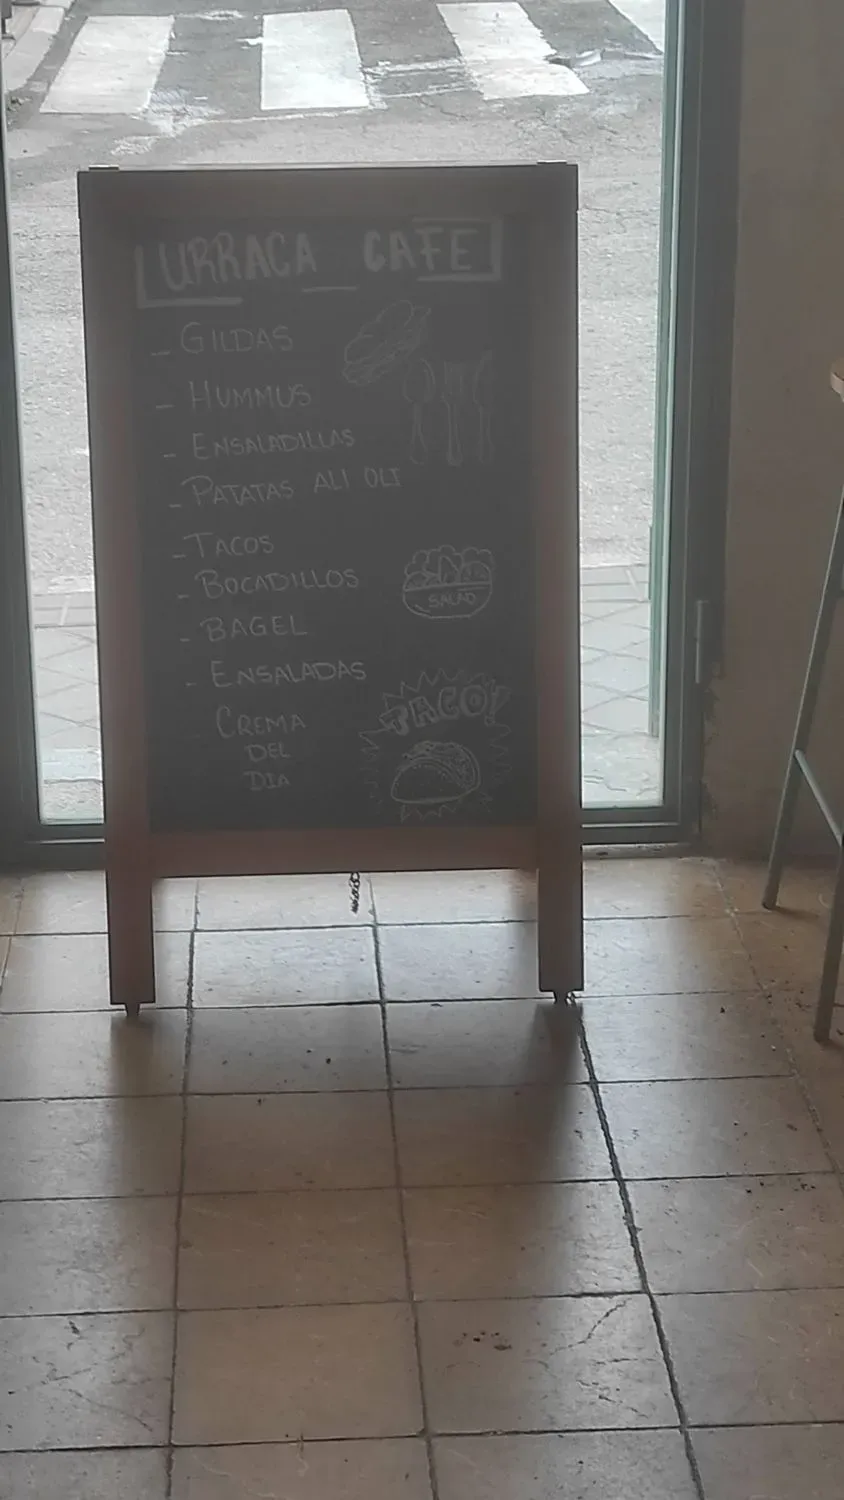 URRACA CAFE
- GILDAS
- HUMMUS
- ENSALADILLAS
- PATATAS ALI OLI
- TACOS
- BOCADILLOS
- BAGEL
- ENSALADAS
- CREMA
DEL
DIA
SALAD
TACO!